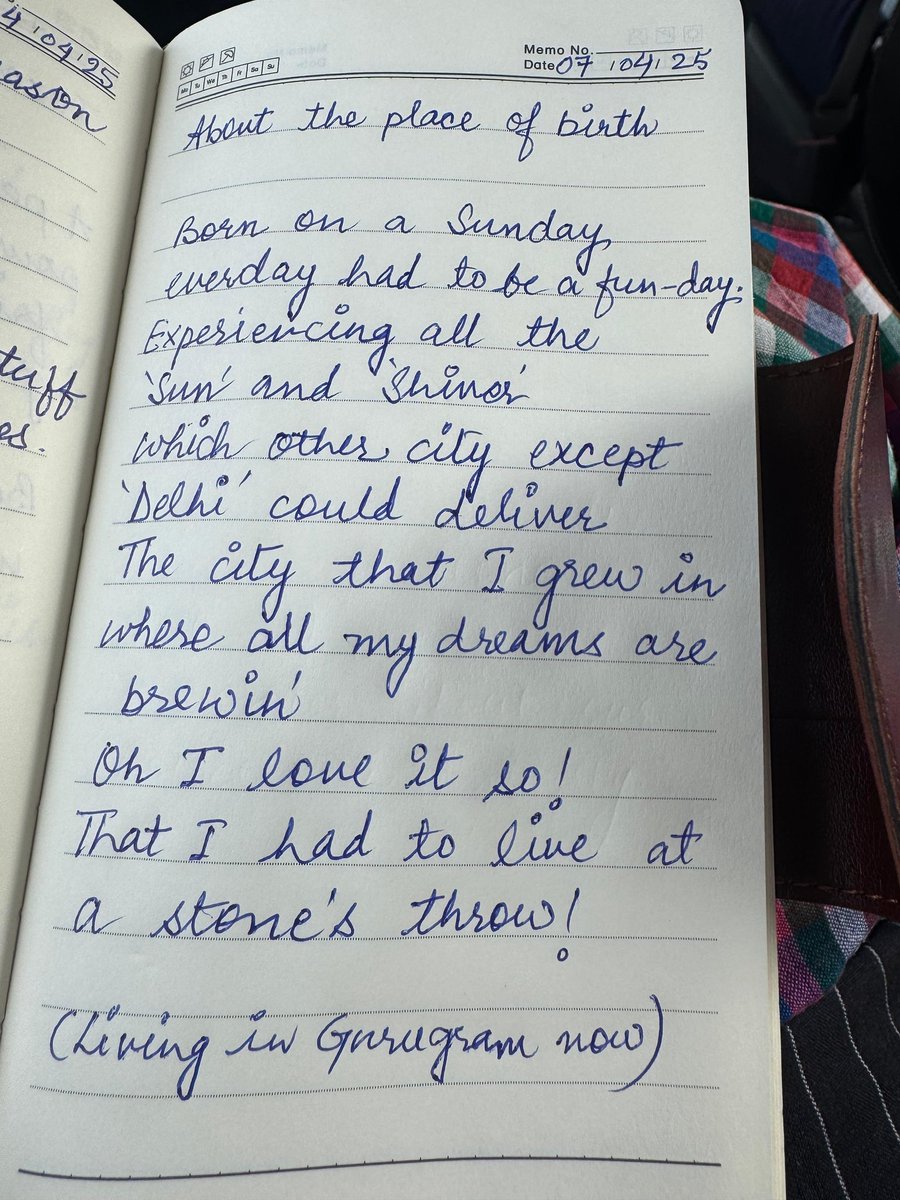 4/04/25
ason
tuff
es.
Mo Tu We Th Fr Sa Su
Memo No.
Date 07/04/25
About the place of birth
Born on a Sunday,
everday had to be a fun-day.
Experiencing all the
'Sun' and
which other city except
'Delhi' could deliver
The city that I grew in
where all my dreams are
brewin'
Oh I love it so!
That I had to live at
a stone's throw!
(Living in Gurugram now)